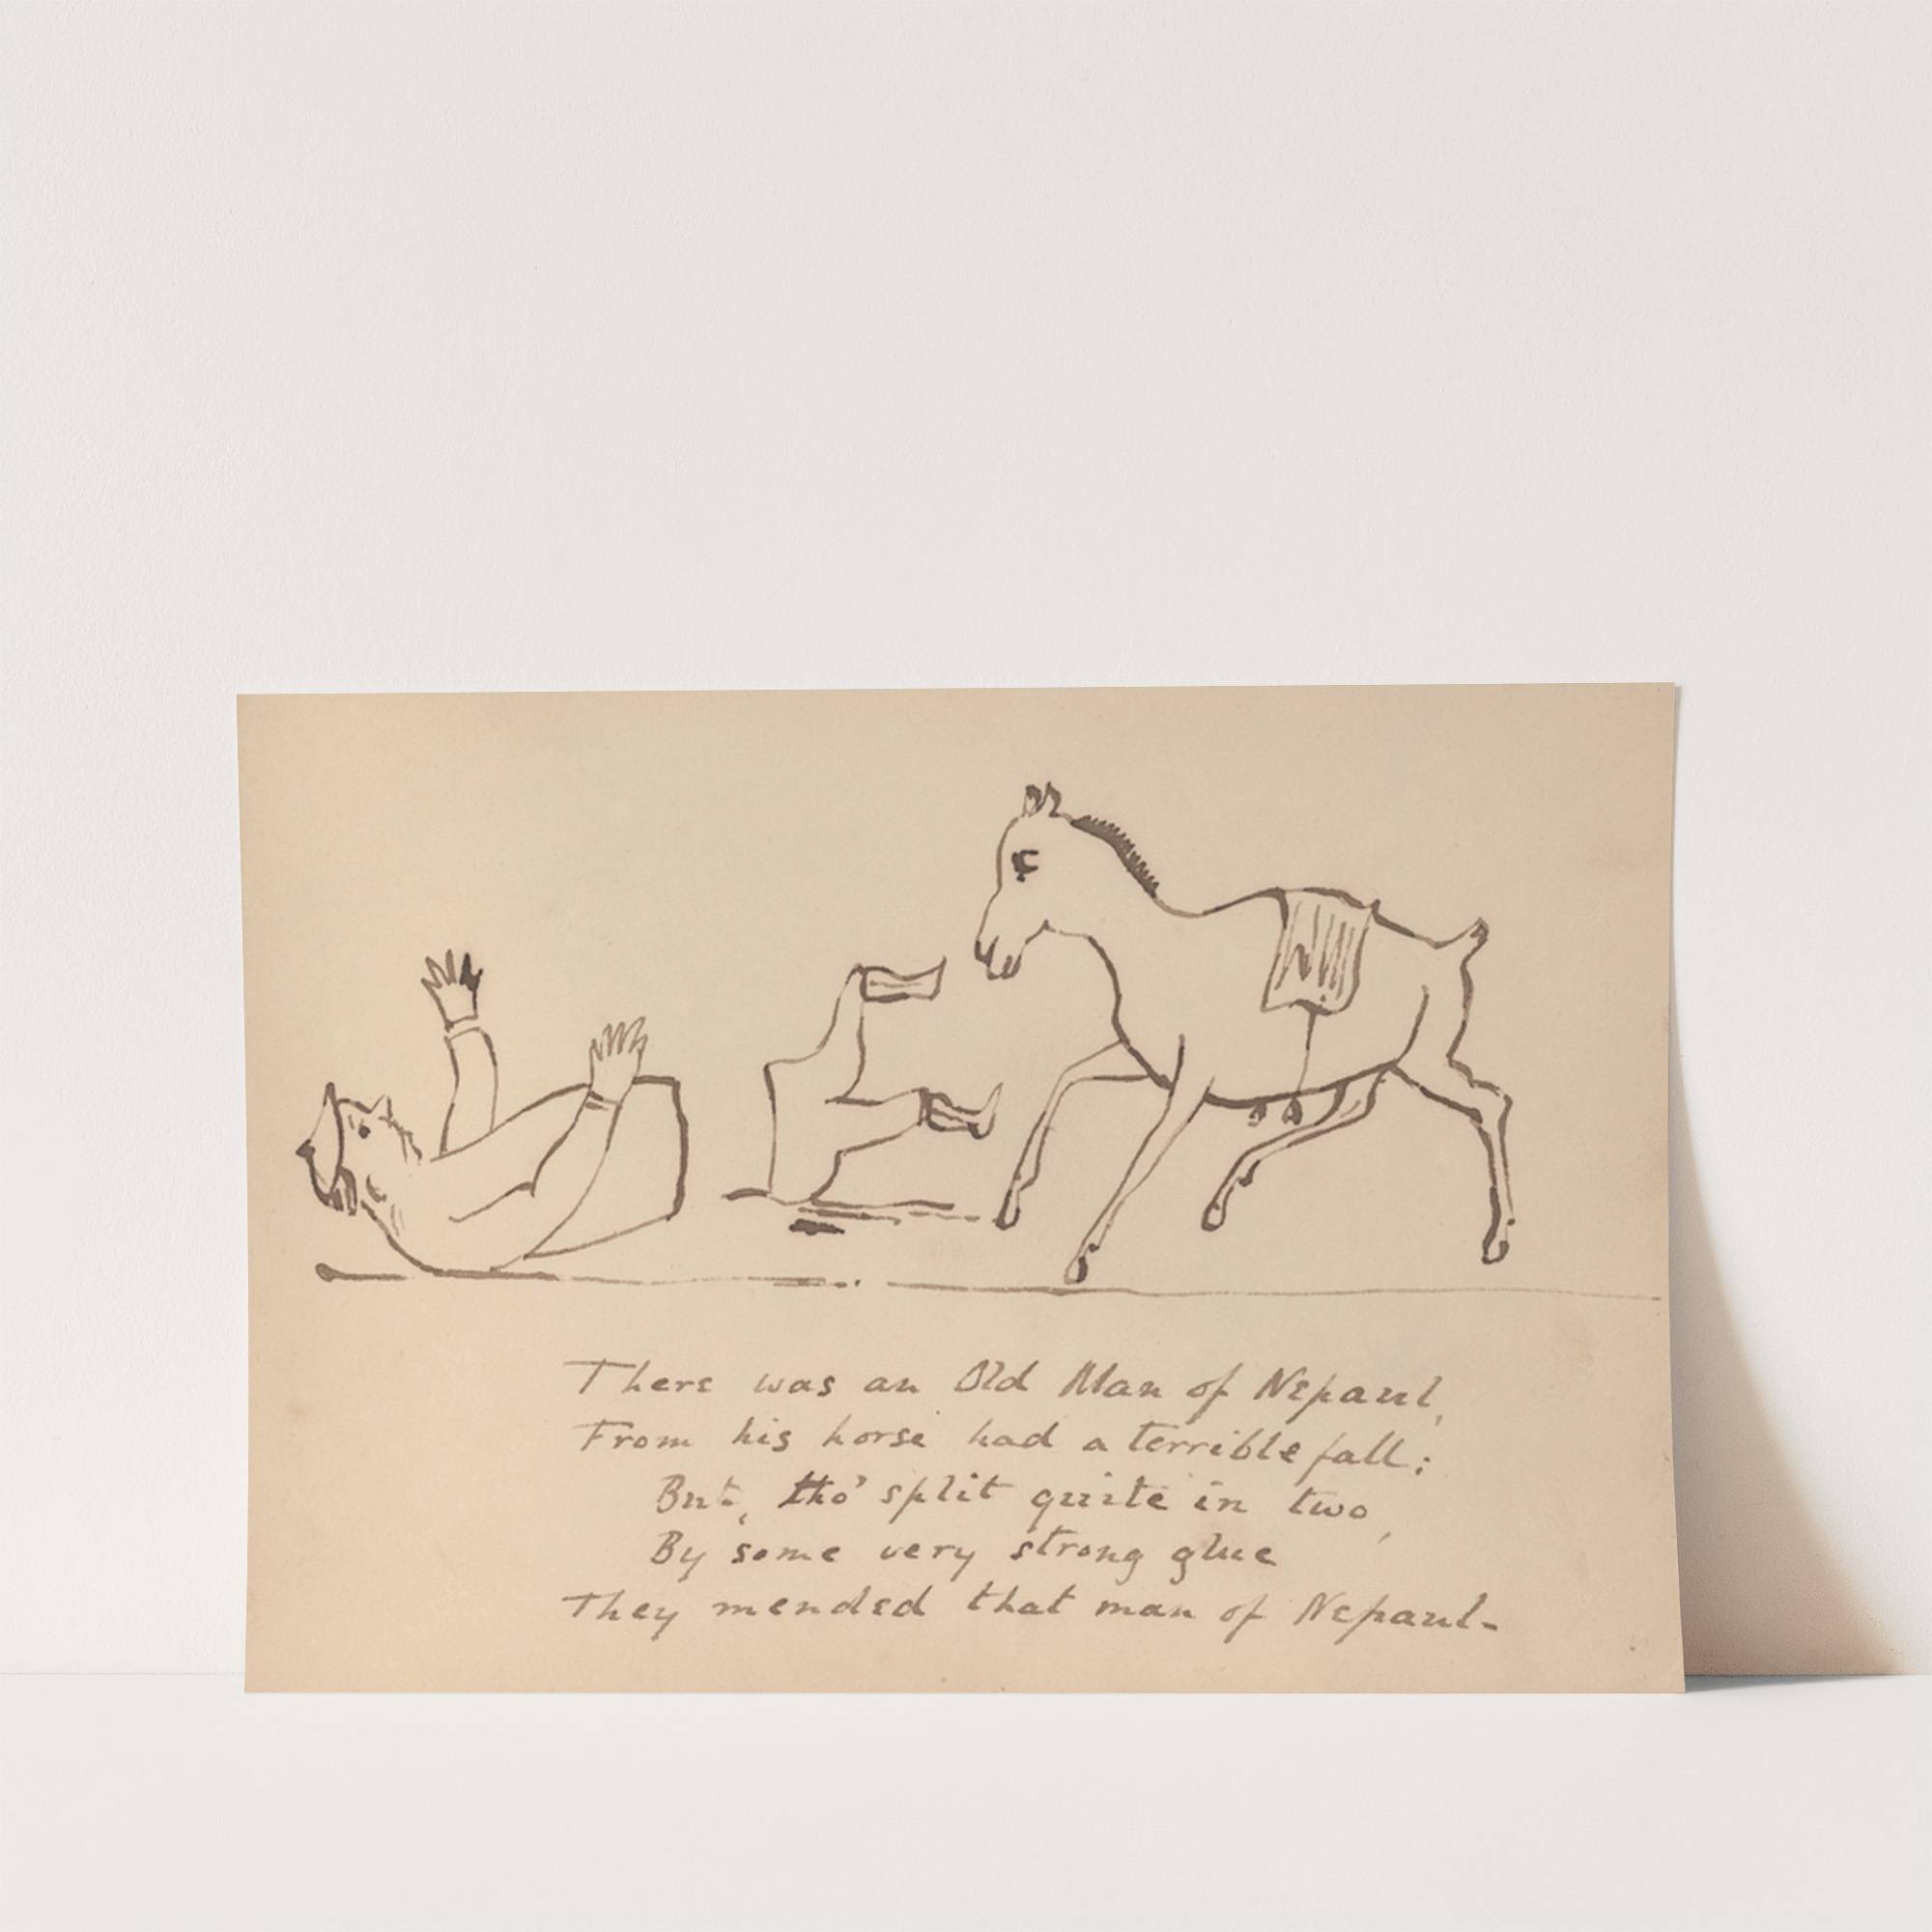 There was an Old Man of Nepaul,
From his horse had a terrible fall;
But, tho' split quite in two,
By some very strong glue
They mended that man of Nepaul-